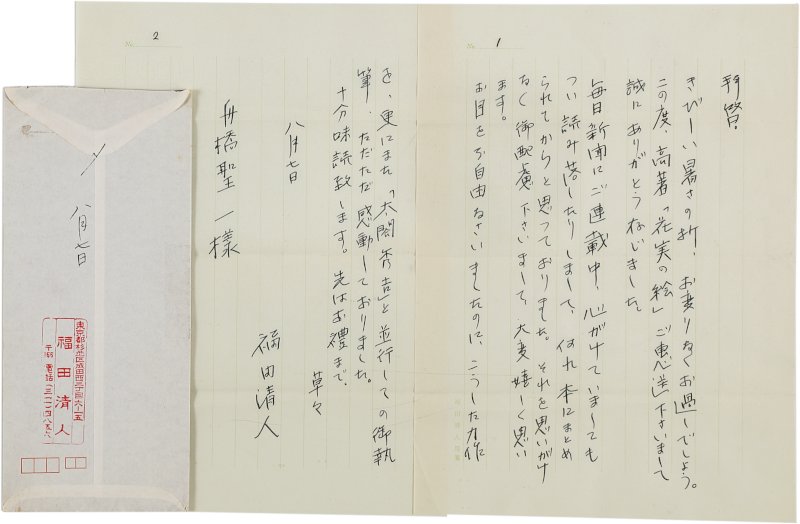 No. 1
拝啓、
きびしい暑さの折、お変りなくお過しでしょう。
この度、高著「花実の絵」ご恵送下さいまして
誠にありがとう存じました。
毎日新聞にご連載中、心がけていましても
つい読み落したりしまして、何れ本にまとめ
られてからと思っておりました。それを思いがけ
なく御配慮下さいまして、大変嬉しく思い
ます。
お目をご不自由なさいましたのに、こうした力作
No. 2
を、更にまた「太閤秀吉」と並行しての御執
筆、ただただ感動しておりました。
十分味読致します。先はお禮まで。
草々
八月七日
福田清人
舟橋聖一様
八月七日
東京都杉並区成田西三丁目六ノ一五
福田清人